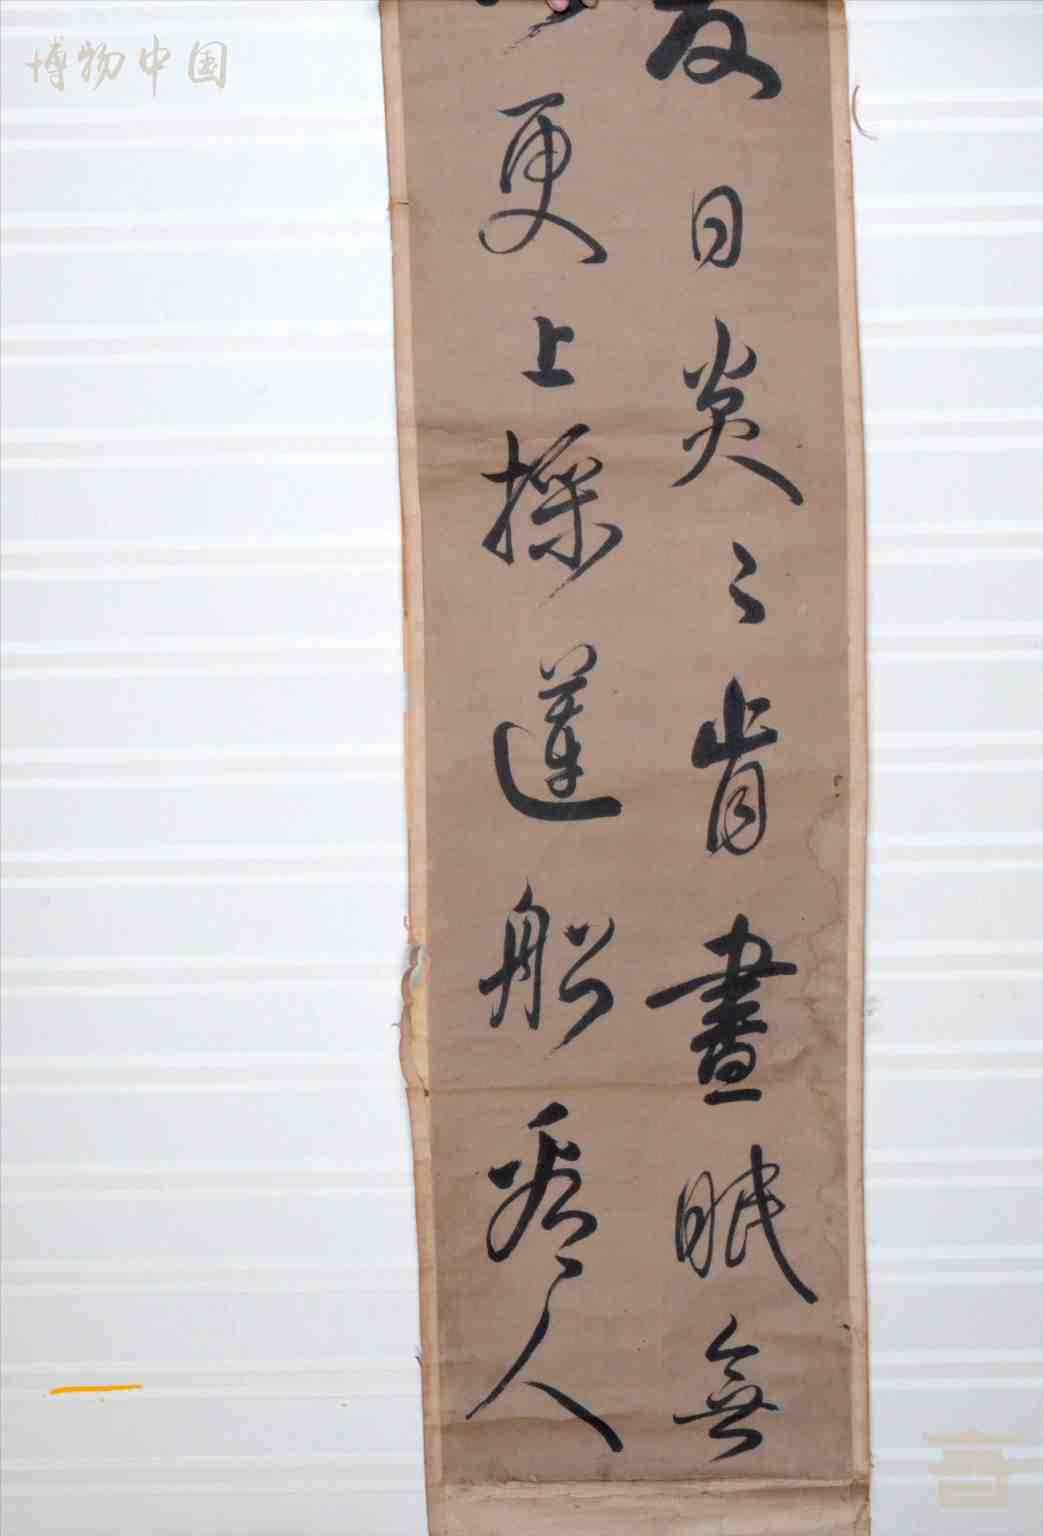 博物中国
日炎々肯晝眠無
更上採蓮船人